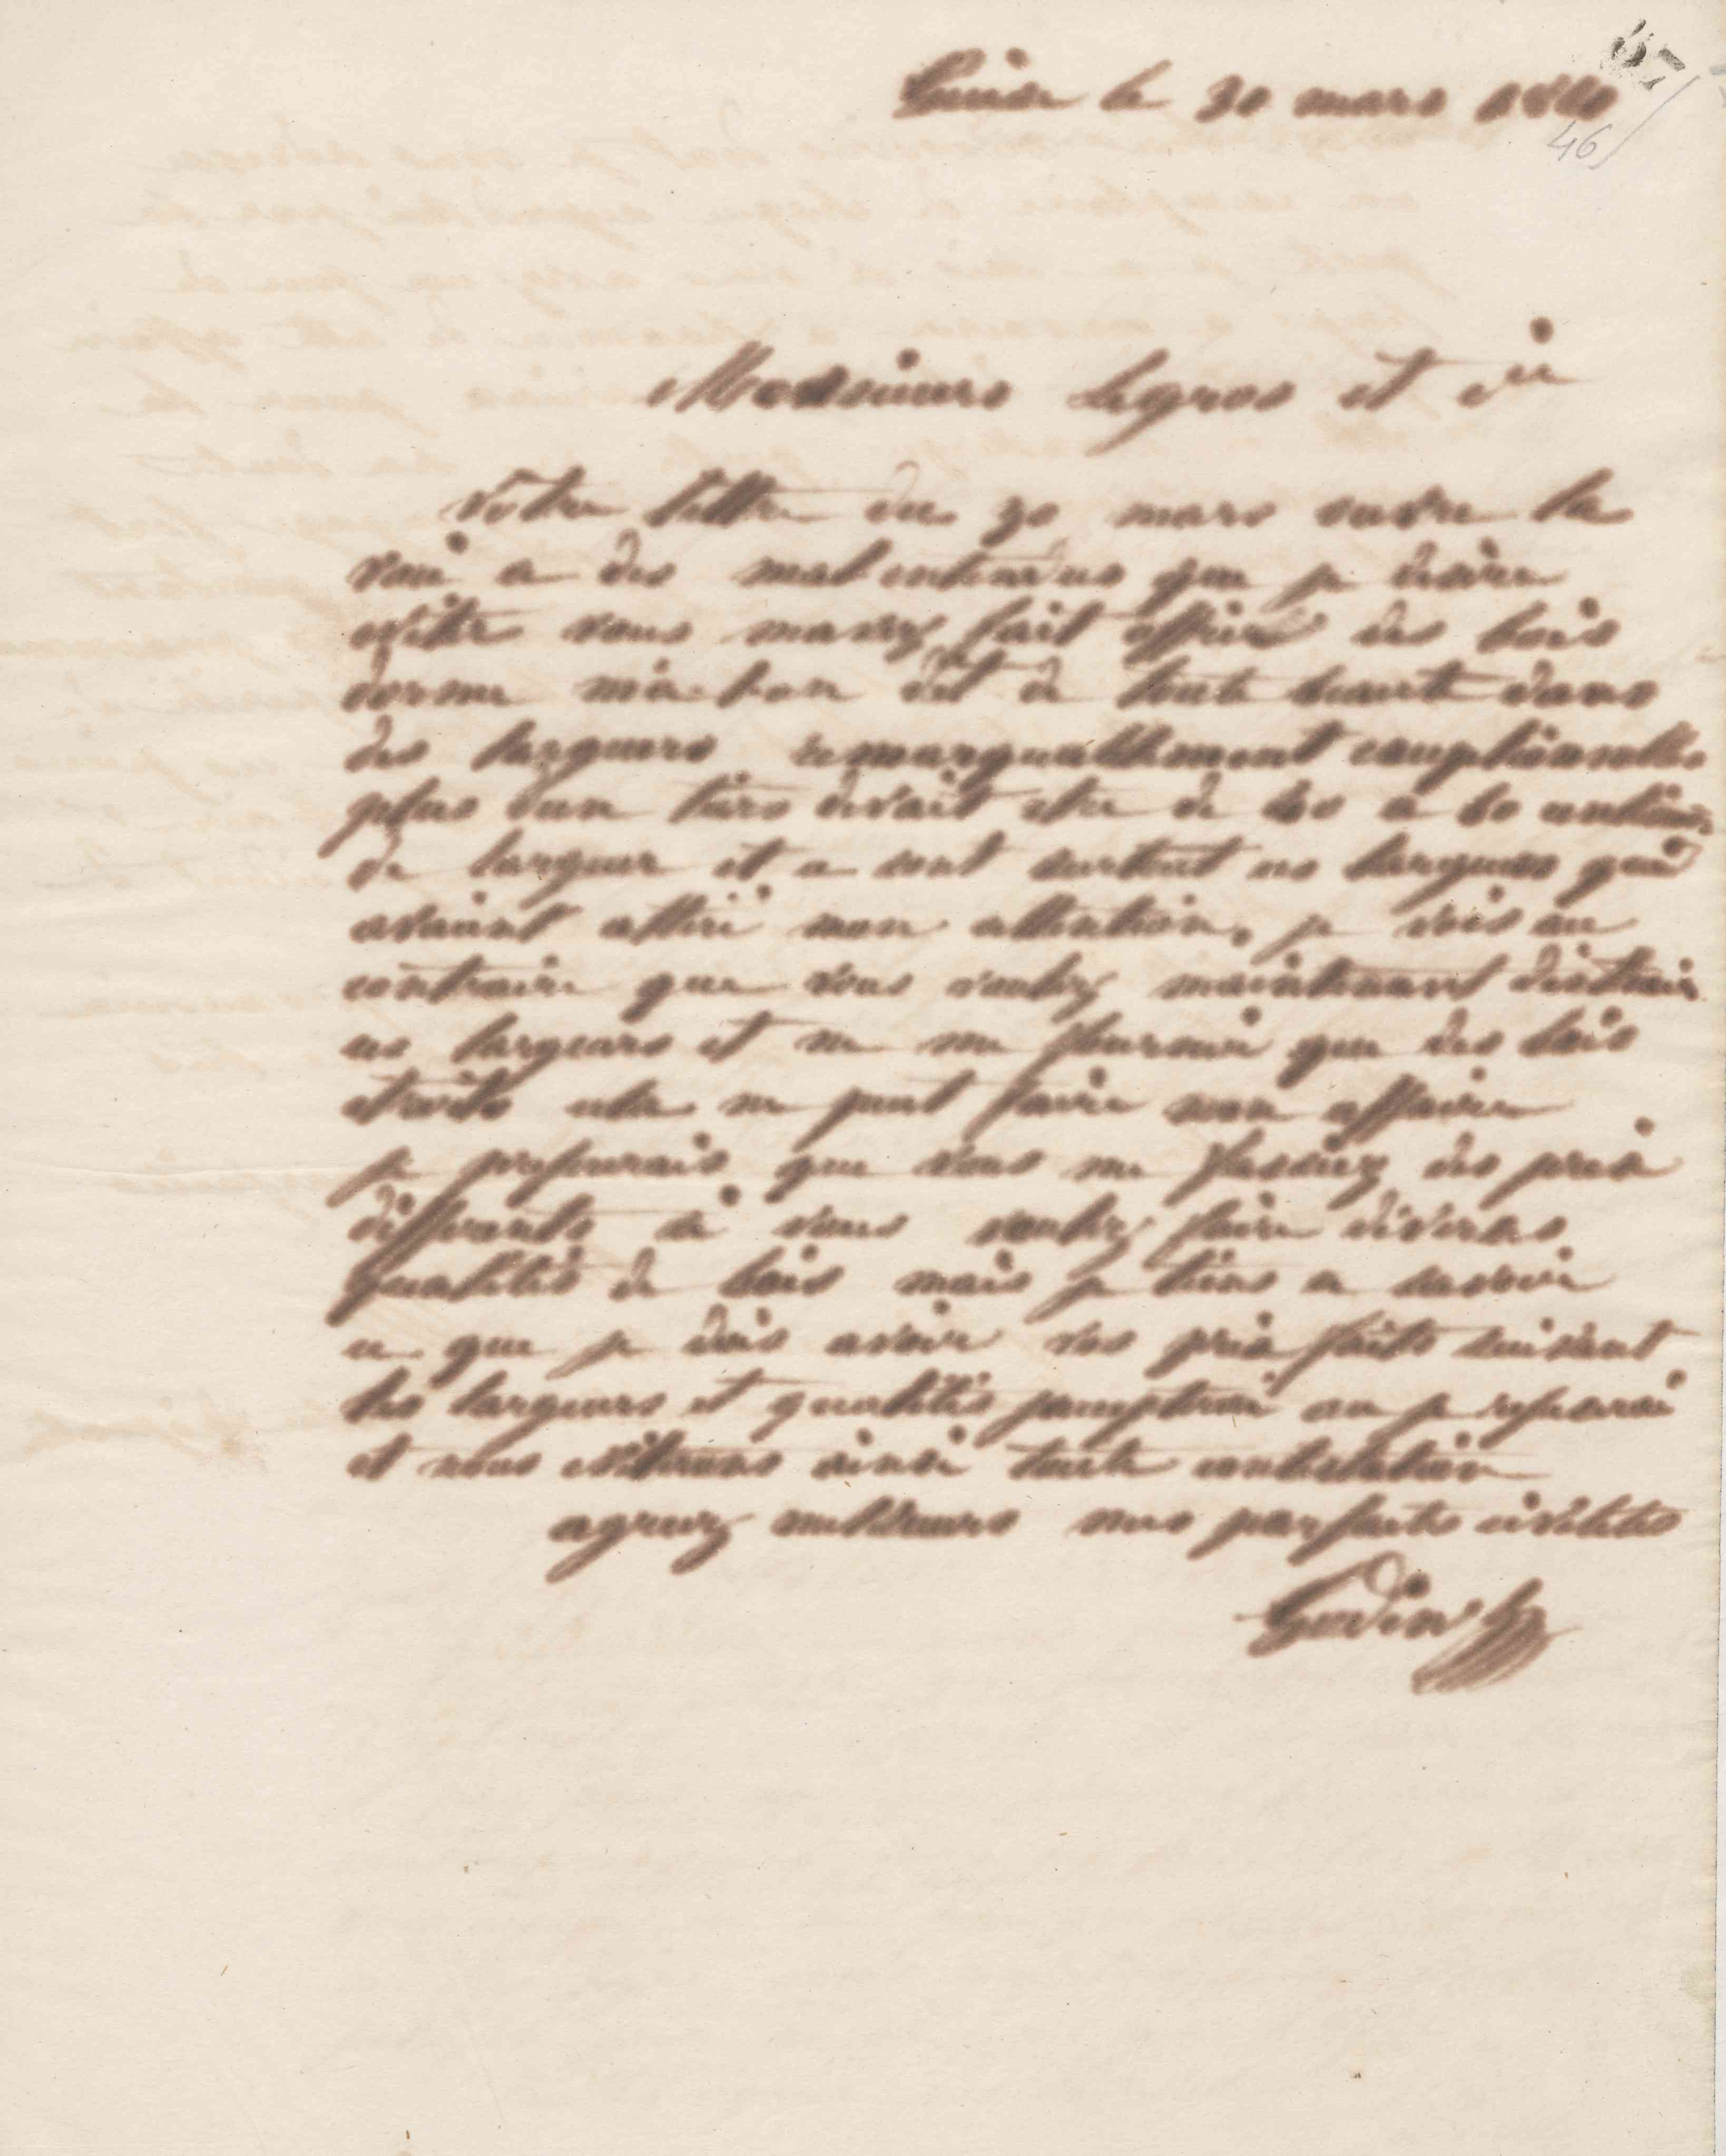 57
Guise le 30 mars 1860
46
Messieurs Legros et cie
Votre lettre du 30 mars ouvre la
voie a des mal entendus que je desire
eviter vous mavez fait offre des bois
dorme dit de toute beauté dans
des largeurs remarquablement exceptionnelles
plus dun tiers devait etre de 40 a 60 centim
de largeur et ce sont surtout ces largeurs qui
avaient attiré mon attention. je vois au
contraire que vous voulez maintenant distraire
ces largeurs et ne me fournir que des bois
etroits cela ne peut faire mon affaire
je prefererais que vous me fassiez des prix
differents si vous voulez faire diverses
qualités de bois mais je tiens a savoir
ce que je dois avoir vos prix faits suivant
les largeurs et qualités jaccepterai ou je refuserai
et nous eviterons ainsi toute contestation
agreez messieurs mes parfaites civilités
Godin